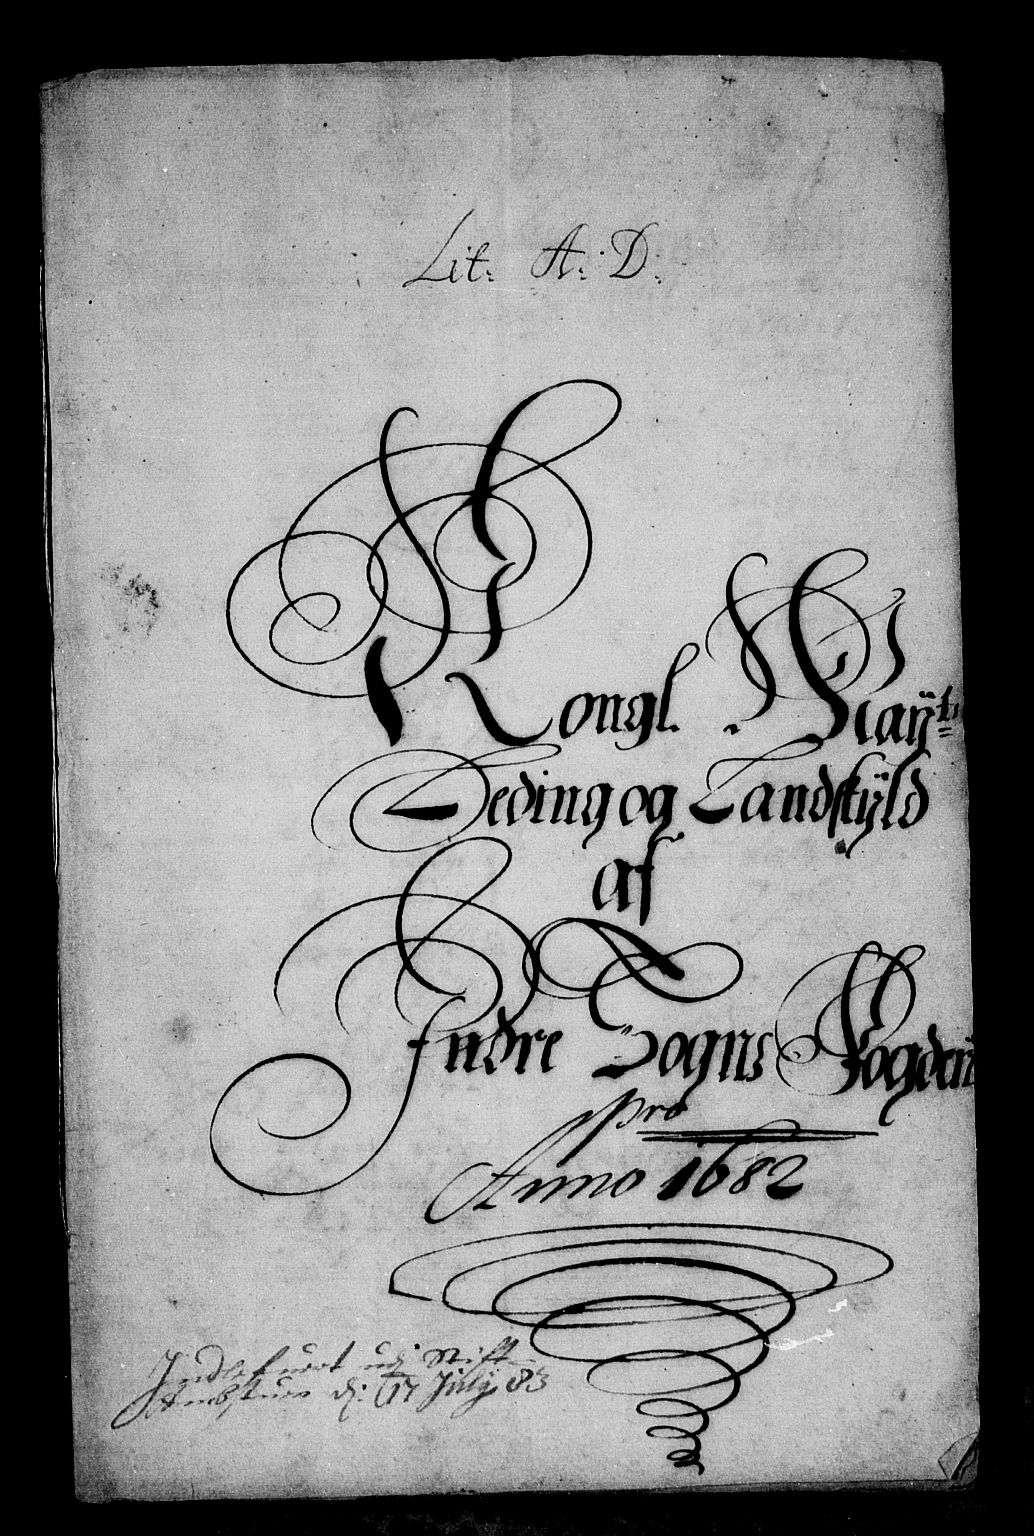 Lit: A: D:
Kongl. Mayᵗˢ
Leding og Landskÿld
af
Indre Sogns Fogderi
pro
Anno 1682
Indlefuert udj Stift
Ambstuen dj: 17 Julÿ 83